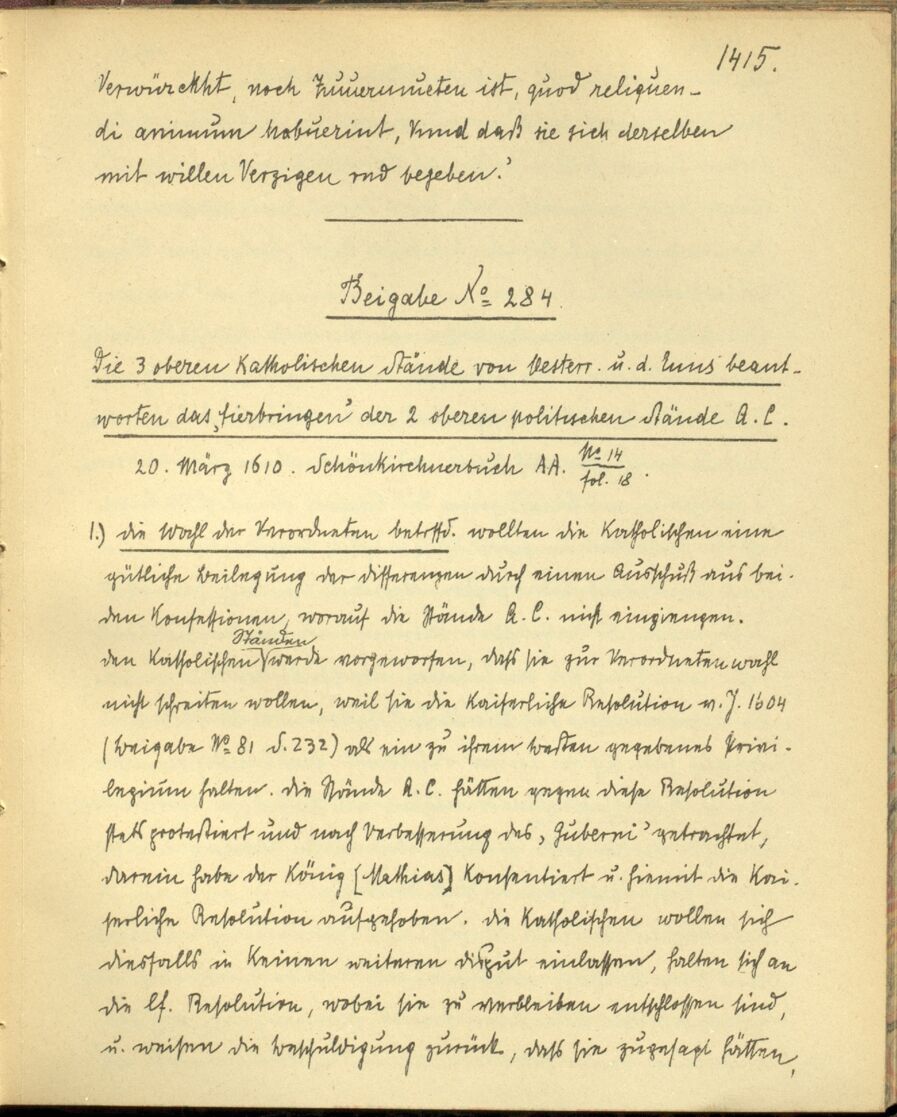 1415.
Verwürckht, noch Zuuermueten ist, quod reliquen-
di animum habuerint, Vnnd daß sie sich derselben
mit willen Verzigen vnd begeben.'
Beigabe No 284.
Die 3 oberen Katholischen Stände von Oesterr. u. d. Enns beant-
worten das 'fierbringen' der 2 oberen politischen Stände A. C.
20. März 1610. Schönkirchnerbuch AA. No 14
fol. 18.
1.) die Wahl der Verordneten betrffd. wollten die Katholischen eine
gütliche Beilegung der Differenzen durch einen Ausschuß aus bei-
den Konfessionen, worauf die Stände A. C. nicht eingiengen.
Ständen
den Katholischen werde vorgeworfen, daß sie zur Verordnetenwahl
nicht schreiten wollen, weil sie die Kaiserliche Resolution v. J. 1604
(Beigabe No 81 S. 232) als ein zu ihrem besten gegebenes Privi-
legium halten. die Stände A. C. hätten gegen diese Resolution
stets protestiert und nach Verbesserung des 'Guberni' getrachtet,
darein habe der König [Mathias] Konsentiert u. hiemit die Kai-
serliche Resolution aufgehoben. die Katholischen wollen sich
diesfalls in Keinen weiteren disput einlassen, halten sich an
die kf. Resolution, wobei sie zu verbleiben entschlossen sind,
u. weisen die Beschuldigung zurück, daß sie zugesagt hätten,